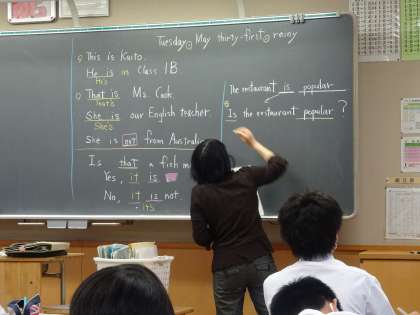 Tuesday, May thirty-first, rainy
This is Kaito.
He is in Class 1B.
He's
That is Ms. Cook.
That's
She is our English teacher.
She's
She is not from Australia
Is that a fish m
Yes, it is
No, it is not.
it's
The restaurant is popular
Is the restaurant popular ?